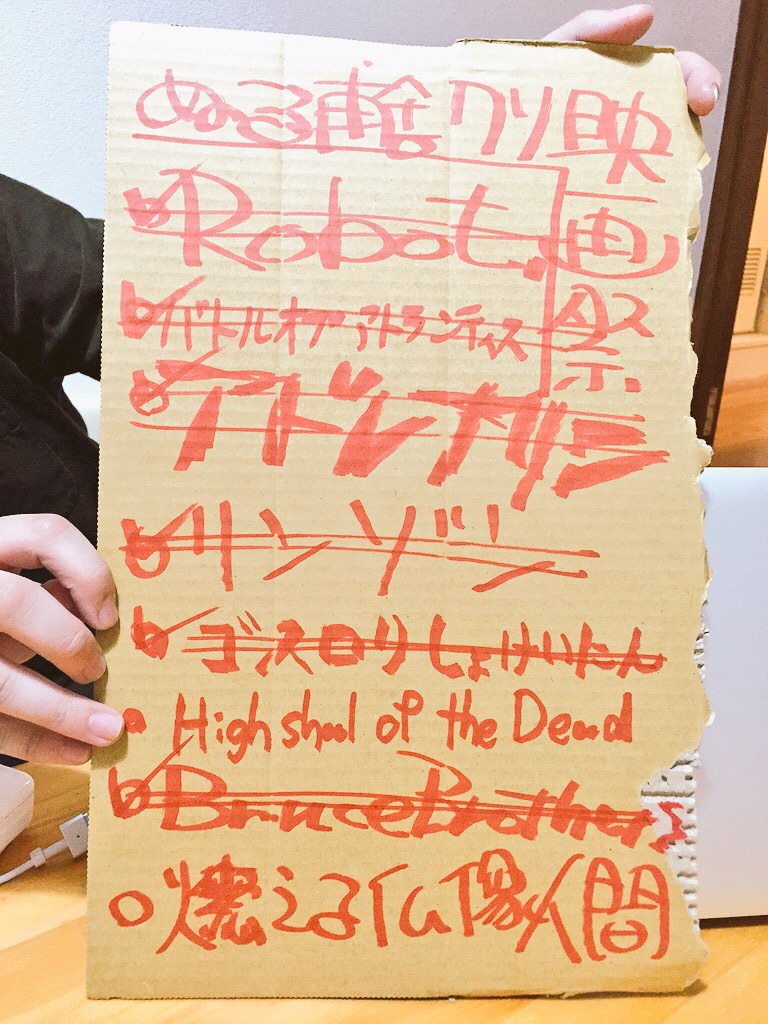 ぬる補舎クソ映画祭
Robot.
バトルオブアトランティス
アドレナリン
サンゾン
ゴスロリしょけいたん
High shool of the Dead
Bruce Brothers
燃える仏像人間